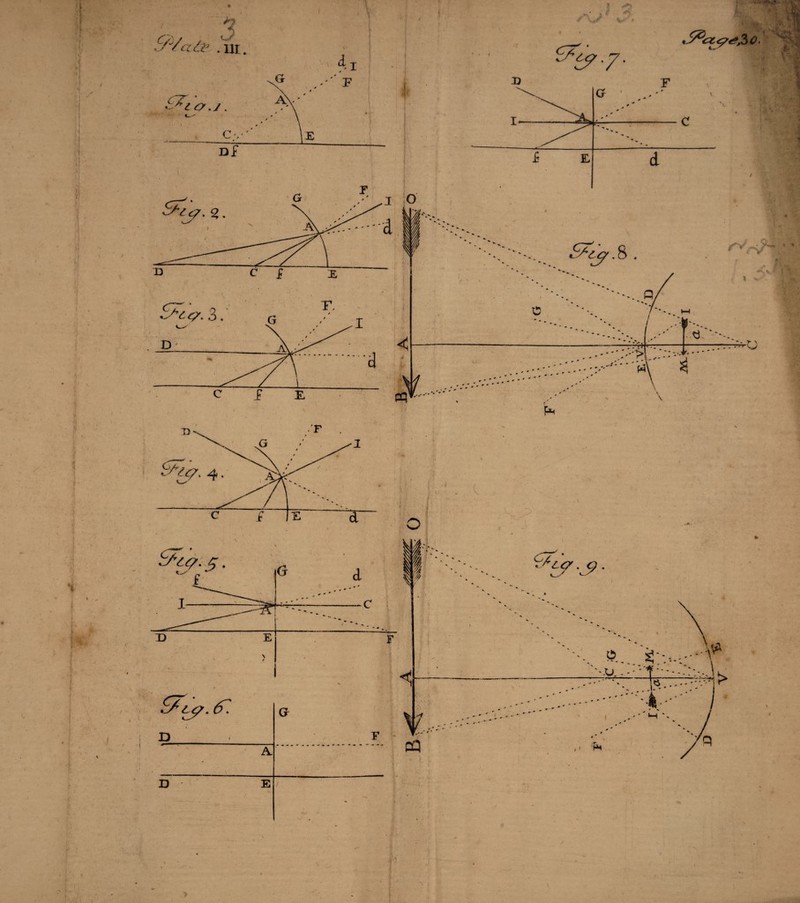 3
Plate .III.
Page 30.
Fig. 1.
G
d I
F
A
C
E
D f
Fig. 2.
G
F
I
A
d
D
C
f
E
Fig. 3.
G
F.
I
D
A
d
C
f
E
Fig. 4.
D
G
F
I
A
C
f
E
d
Fig. 5.
f
G
d
I
A
C
D
E
F
Fig. 6.
G
D
F
A
D
E
Fig. 7.
D
G
F
I
A
C
f
E
d
Fig. 8.
O
D
G
I
a
A
V
C
E
M
B
F
Fig. 9.
O
E
C
G
M
A
a
V
I
B
F
D